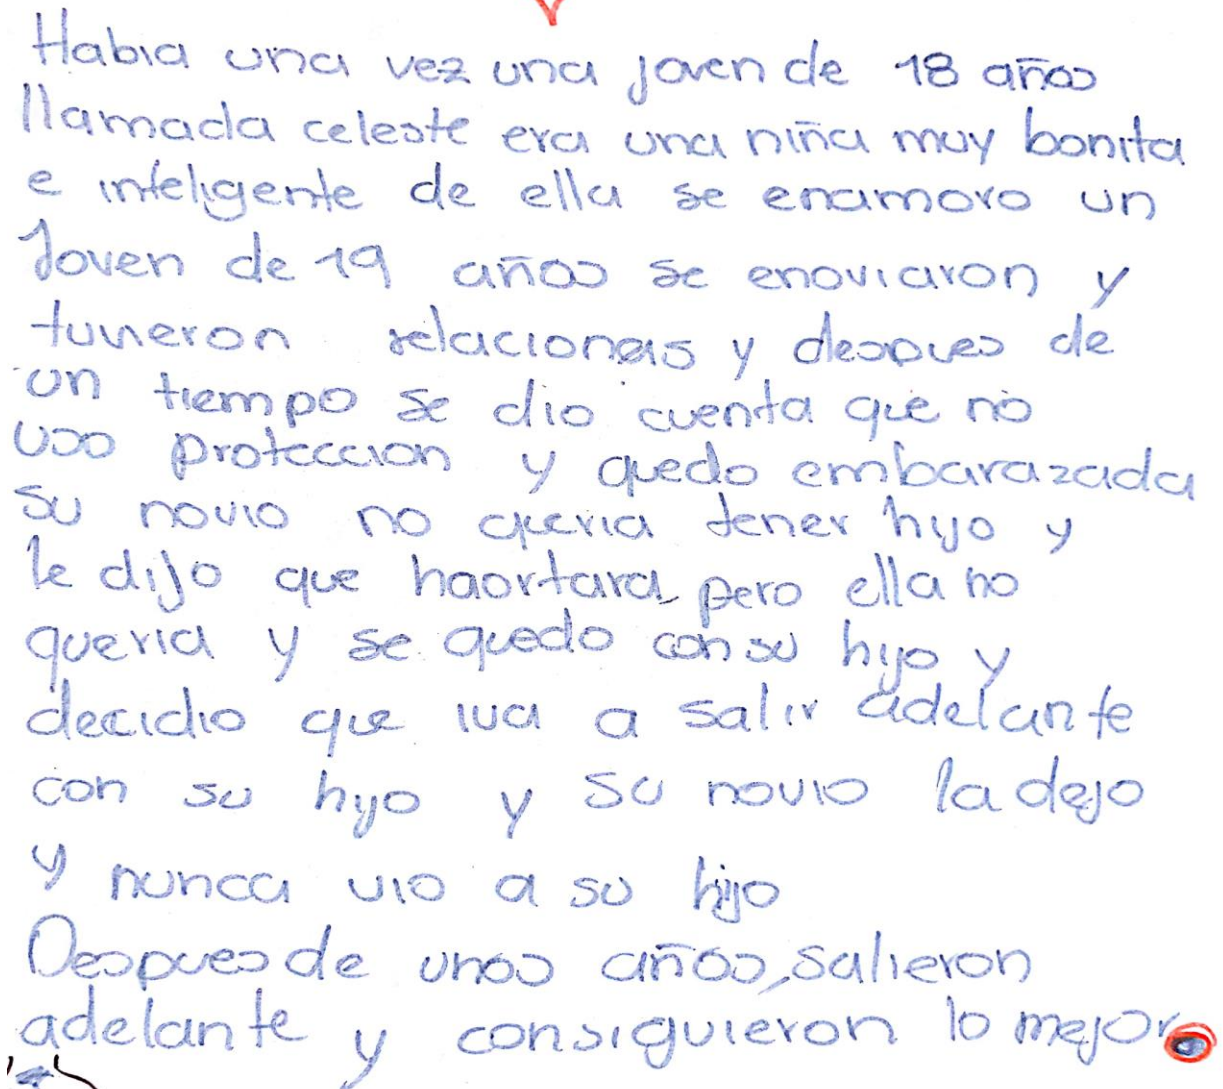 Habia una vez una joven de 18 años
llamada celeste era una niña muy bonita
e inteligente de ella se enamoro un
Joven de 19 años se enoviaron y
tuvieron relaciones y despues de
un tiempo se dio cuenta que no
uso proteccion y quedo embarazada
su novio no queria tener hijo y
le dijo que haortara pero ella no
queria y se quedo con su hijo y
decidio que iva a salir adelante
con su hijo y su novio la dejo
y nunca vio a su hijo
Despues de unos años, salieron
adelante y consiguieron lo mejor.